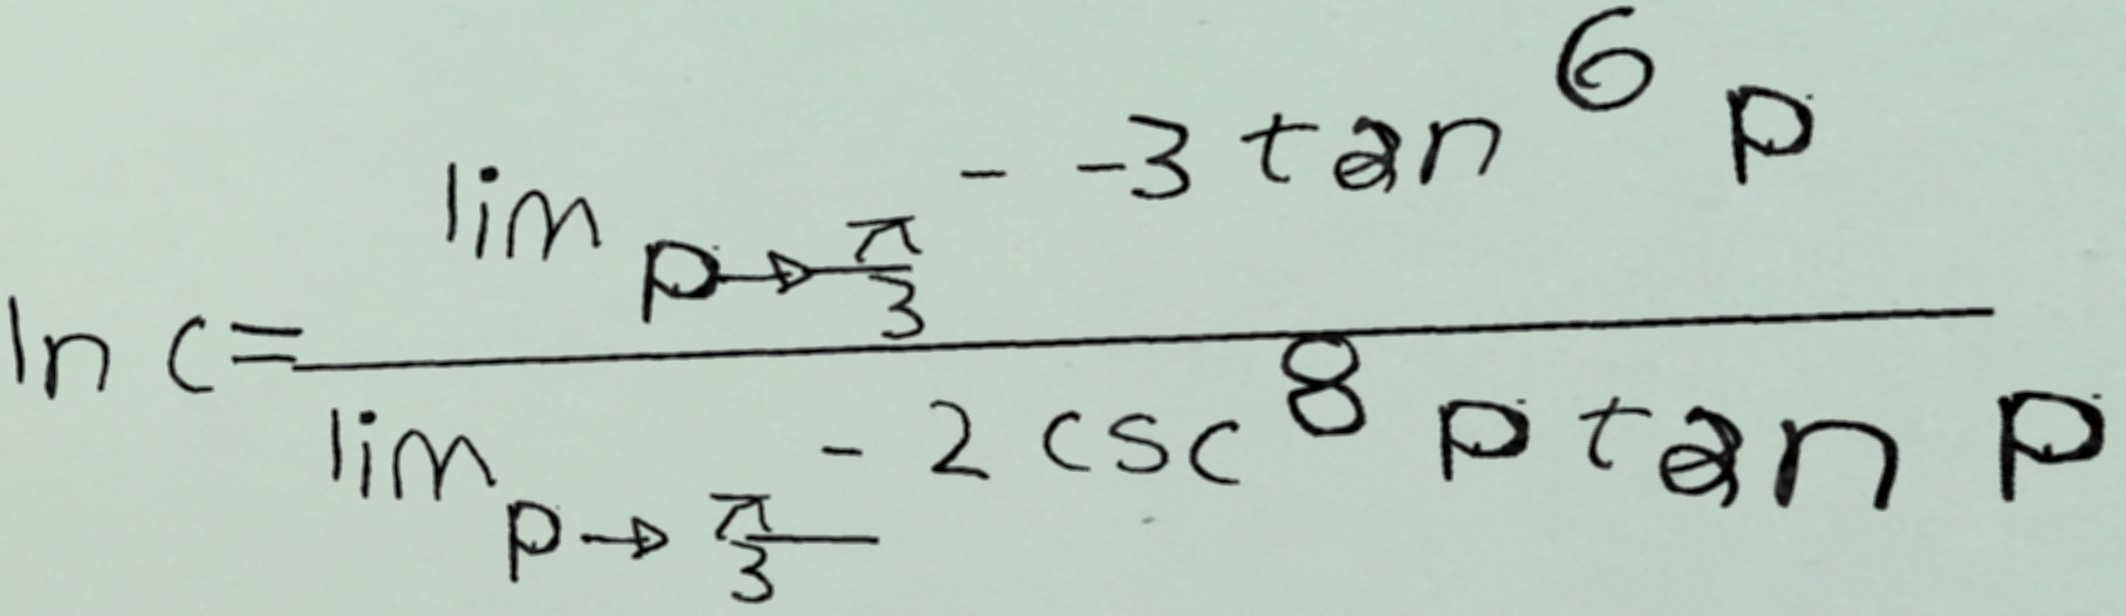 \ln c = \frac{\lim_{p \to \frac{\pi}{3}^{-}} -3 \tan^{6} p}{\lim_{p \to \frac{\pi}{3}^{-}} 2 \csc^{8} p \tan p}